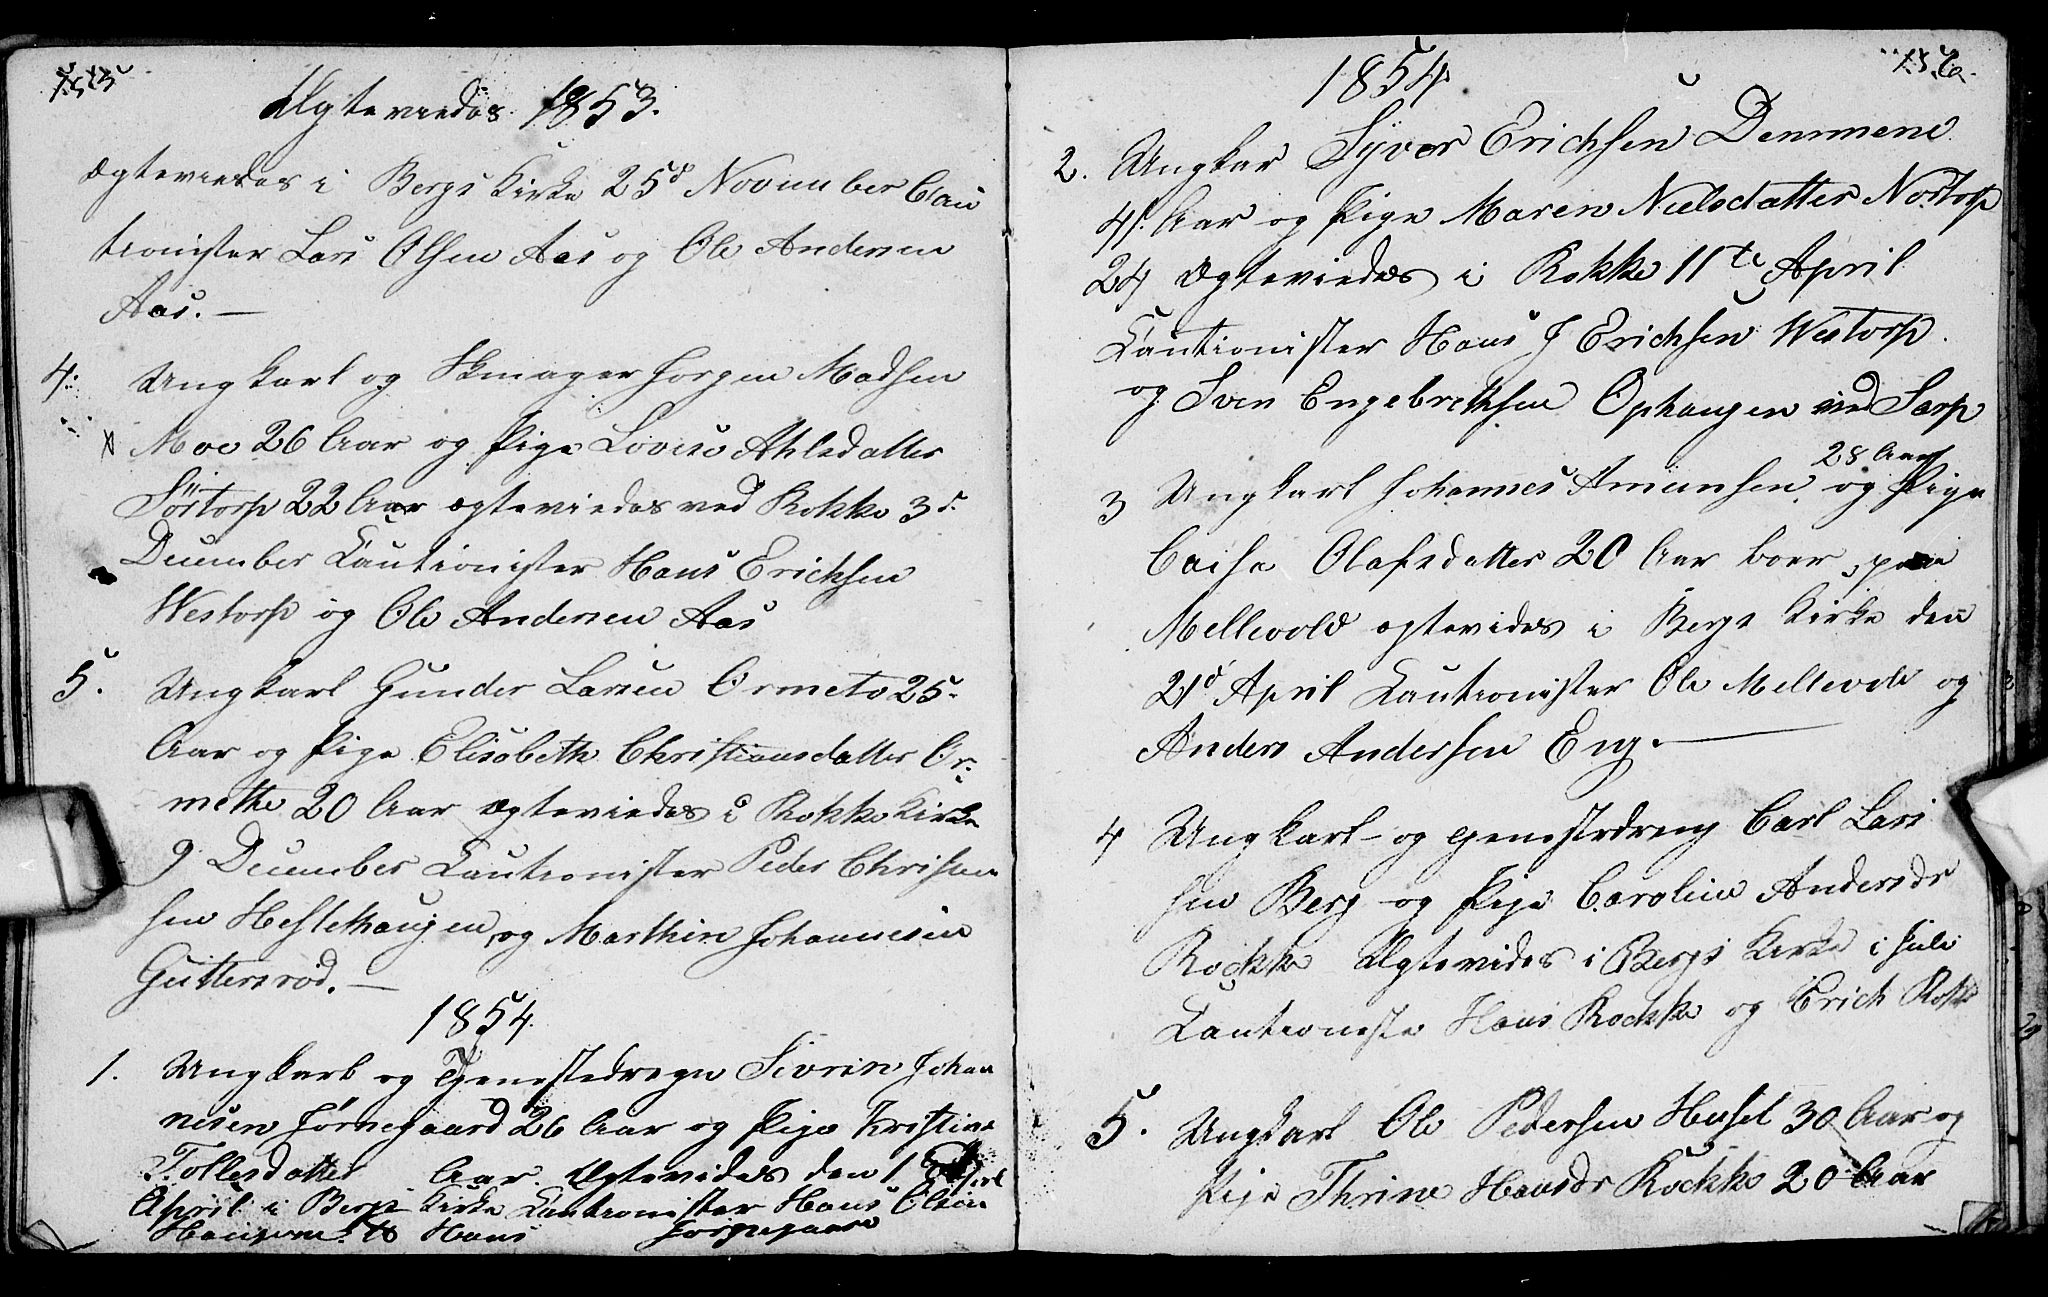 155
Ægteviedes 1853.
Ægteviedes i Bergs Kirke 25d November Cau
tionister Lars Olsen Aas og Ole Andersen
Aas. —
4. Ungkarl og Skmager Jørgen Madsen
Moe 26 Aar og Pige Lovise Ahlsdatter
Sörtorp 22 Aar ægteviedes ved Rokke 3d.
December Cautionister Hans Erichsen
Westorp og Ole Andersen Aas
5. Ungkarl Gunder Larsen Ormeto 25
Aar og Pige Elisabeth Christiansdatter Or-
methe 20 Aar ægteviedes i Rokke Kirke
9 December Cautionister Peder Christen
sen Hestehaugen og Marthin Johannesen
Guttersrød. —
1854.
1. Ungkarl og Tjenestedregn Sivrin Johan
nesen Jørnegaard 26 Aar og Pige Kristine
Tollesdatter Aar. Ægtevides den 1
April i Bergs Kirke Cautionister Hans Olsen
Haugen Hans Jørnegaard
156.
1854.
2. Ungkar Syver Erichsen Demmene
41. Aar og Pige Maren Nielsdatter Nortorp
24 Ægteviedes i Rokke 11te April
Cautionister Hans J Erichsen Westorp.
og Sven Engebrethsen Ophaugen ved Sarp
28 Aar
3 Ungkarl Johannes Amunsen og Pige
Caisa Olafsdatter 20 Aar boer paa
Mellevold ægtevides i Bergs Kirke den
21d April Cautionister Ole Mellevold og
Anders Andersen Eng. —
4 Ungkarl og tjenestedreng Carl Lars
sen Berg og Pige Caroline Andersdr
Rockke Ægtevides i Bergs Kirke i Juli
Cautioniste Hans Rockke og Erich Rokke
5. Ungkarl Ole Pedersen Husel 30 Aar og
Pige Thrine Hansdr Rockke 20 Aar